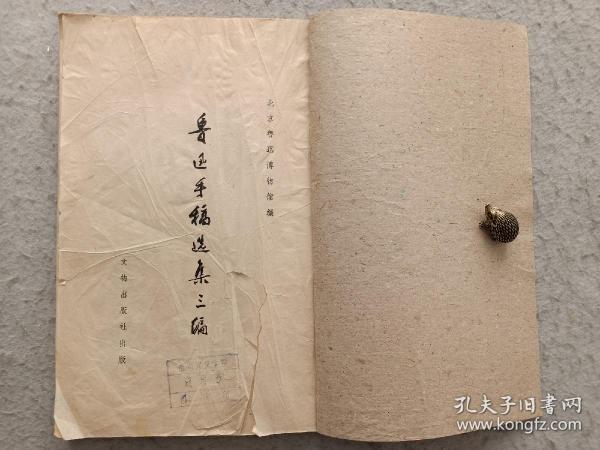 北京魯迅博物館編
魯迅手稿选集三編
文物出版社出版
孔夫子旧书网
www.kongfz.com